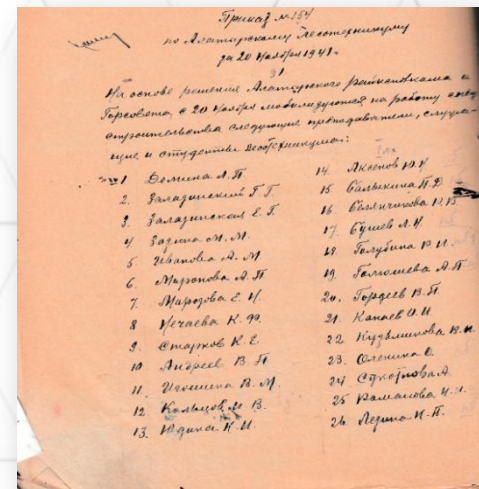 Приказ № 254
по Алатырскому Лесотехникуму
за 20 Ноября 1941 г.
§1
На основе решения Алатырского Райисполкома и
Горсовета, с 20 Ноября мобилизуются на работу
строительства следующие преподаватели, служа-
щие и студенты Лесотехникума:
1 Демина А. П.
2. Залазинский Г. Г.
3. Залазинская Е. Г.
4 Зорина М. М.
5. Иванова А. М
6. Миронова А. П
7. Марозова Е. И.
8 Нечаева К. Ф.
9. Старков К. Е.
10 Андреев В. П
11. Игошина В. М.
12 Кольцов М В.
13. Юдина К. И.
14. Аксенов
15 Балыкина П. Д
16. Белянчикова
17. Бушев А. И.
18. Голубина Р. И.
19. Голюшева А. П
20. Гордеев В. П.
21. Канаев О. И
22 Кузьминова В. И.
23. Оленина О.
24
25 Романова Н. И.
26. Ледина Н. П.